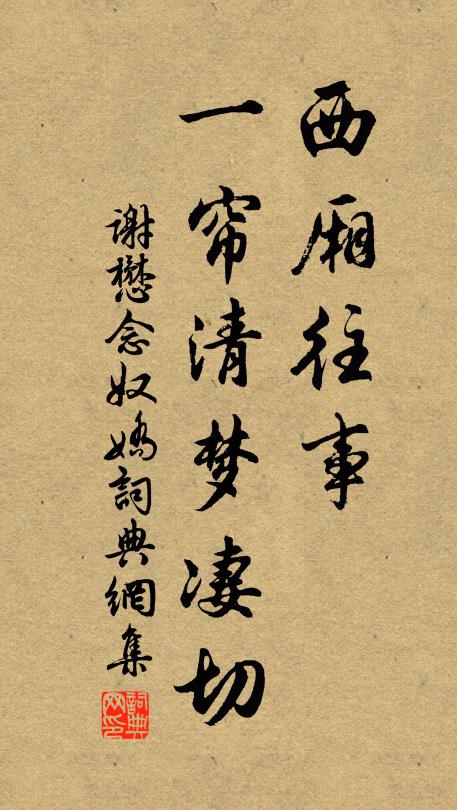 西厢往事
一帘清梦凄切
谢懋念奴娇詞典網集
詞典网印